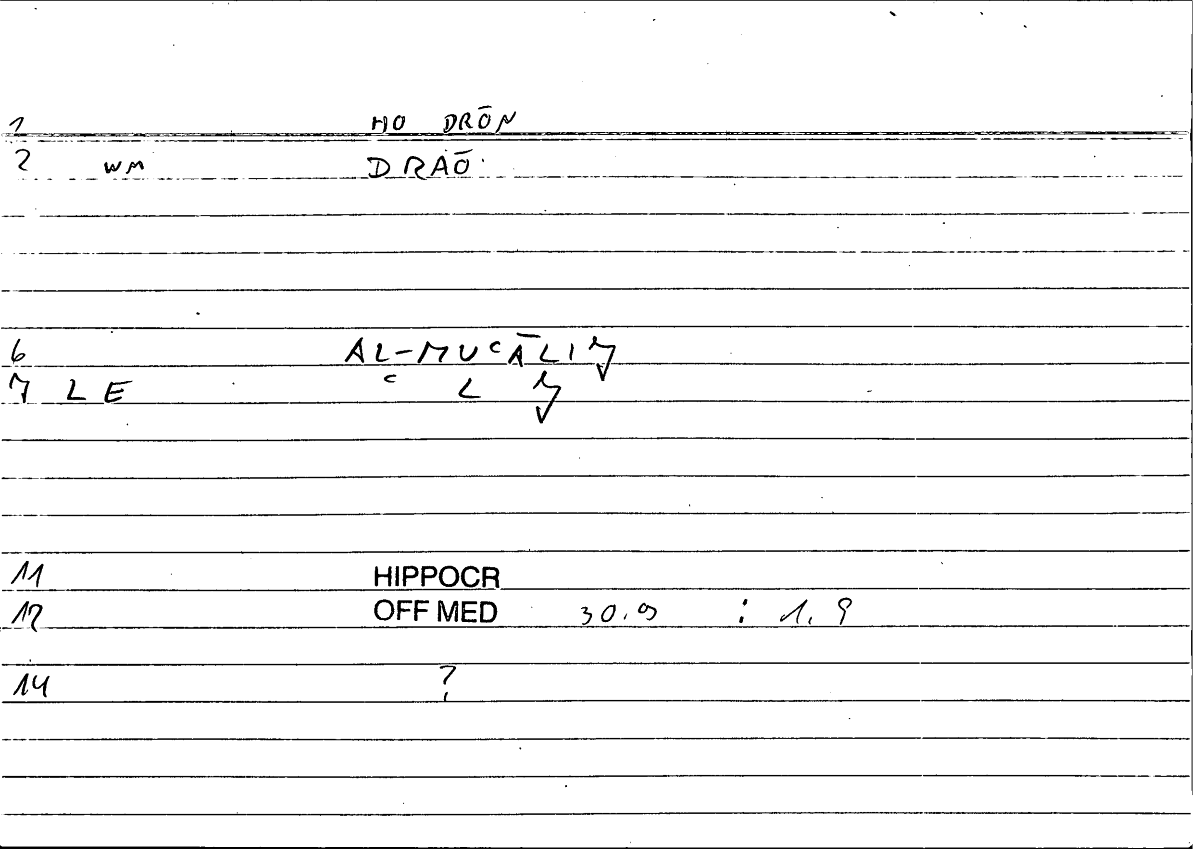 1 HO DRŌN
2 WM DRAŌ
6 AL-MUᶜĀLIǦ
7 LE ᶜ L Ǧ
11 HIPPOCR
12 OFF MED 30.9 : 1.9
14 ?